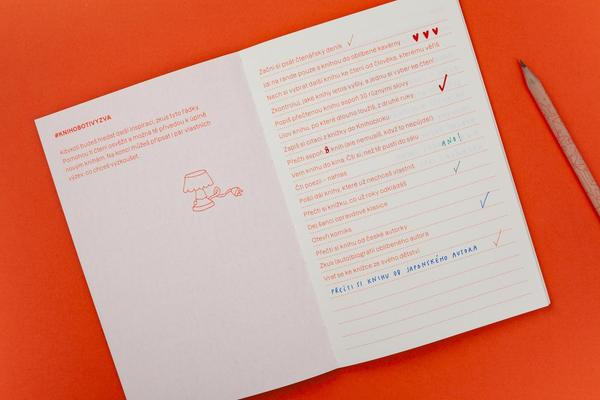 #KNIHOBOTIVÝZVA
Kdykoli budeš hledat další inspiraci, zkus tyto řádky.
Pomohou ti čtení osvěžit a možná tě přivedou k úplně
novým knihám. Na konci můžeš připsat i pár vlastních
výzev, co chceš vyzkoušet.
Začni si psát čtenářský deník
Jdi na rande pouze s knihou do oblíbené kavárny
Nech si vybrat další knihu ke čtení od člověka, kterému věříš
Zkontroluj, jaké knihy letos vyšly, a jednu si vyber ke čtení
Popiš přečtenou knihu aspoň 30 různými slovy
Ulov knihu, po které dlouho toužíš, z druhé ruky
Zapiš si citaci z knihy do Knihobotku
Přečti aspoň 8 knih (ale nemusíš, když to nepůjde)
Vem knihu do kina. Čti si, než tě pustí do sálu
ANO!
Čti poezii – nahlas
Pošli dál knihy, které už nechceš vlastnit
Přečti si knížku, co už roky odkládáš
Dej šanci opravdové klasice
Otevři komiks
Přečti si knihu od české autorky
Zkus (auto)biografii oblíbeného autora
Vrať se ke knížce ze svého dětství
PŘEČTI SI KNIHU OD JAPONSKÉHO AUTORA